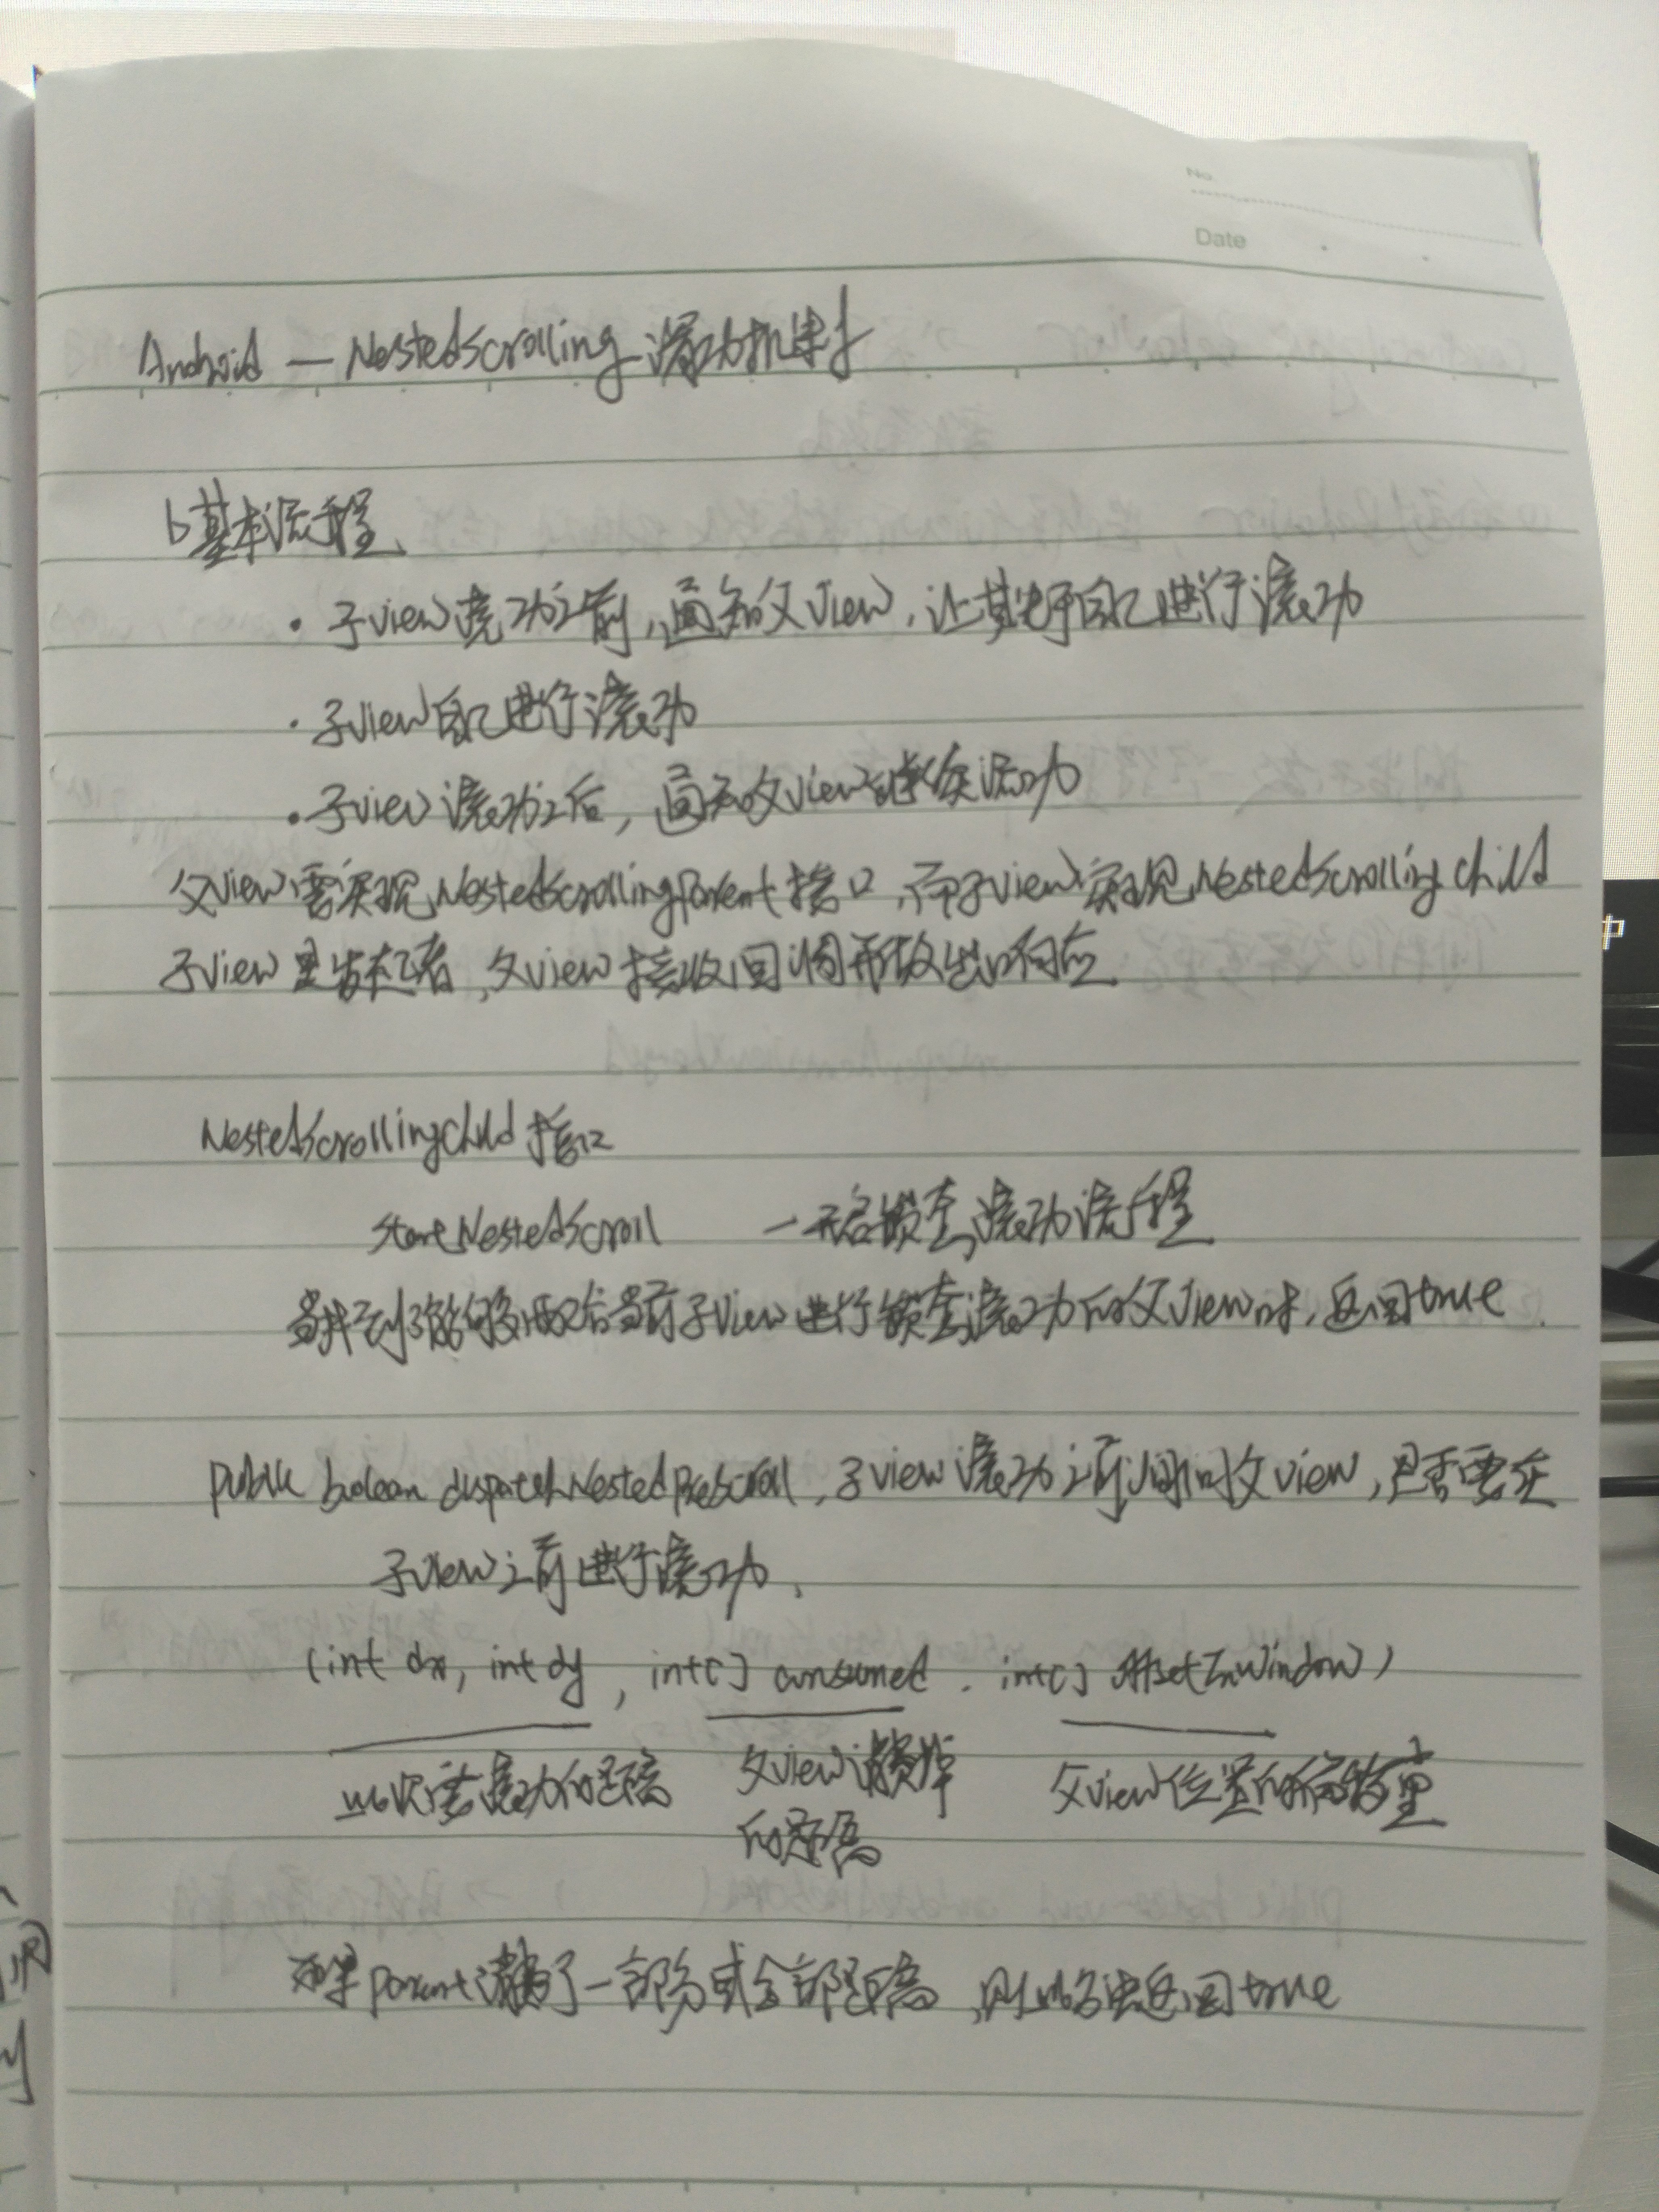 No.
Date
Android — NestedScrolling 滑动机制
基本流程
· 子view滚动之前，通知父View，让其先于自己进行滚动
· 子view自己进行滚动
· 子view滚动之后，通知父view继续滚动
父view需实现NestedScrollingParent接口，而子view实现NestedScrollingChild
子view是发起者，父view接收回调并做出响应
NestedScrollingChild 接口
startNestedScroll 一开启嵌套滚动流程
当找到了能够配合当前子view进行嵌套滚动的父View时，返回true
public boolean dispatchNestedPreScroll，子view滚动之前询问父view，是否要在
子view之前进行滚动，
(int dx, int dy, int[] consumed, int[] offsetInWindow)
此次滚动的距离 父view消费掉 父view位置的偏移量
的距离
如果parent消费了一部分或全部距离，则此方法返回true
中